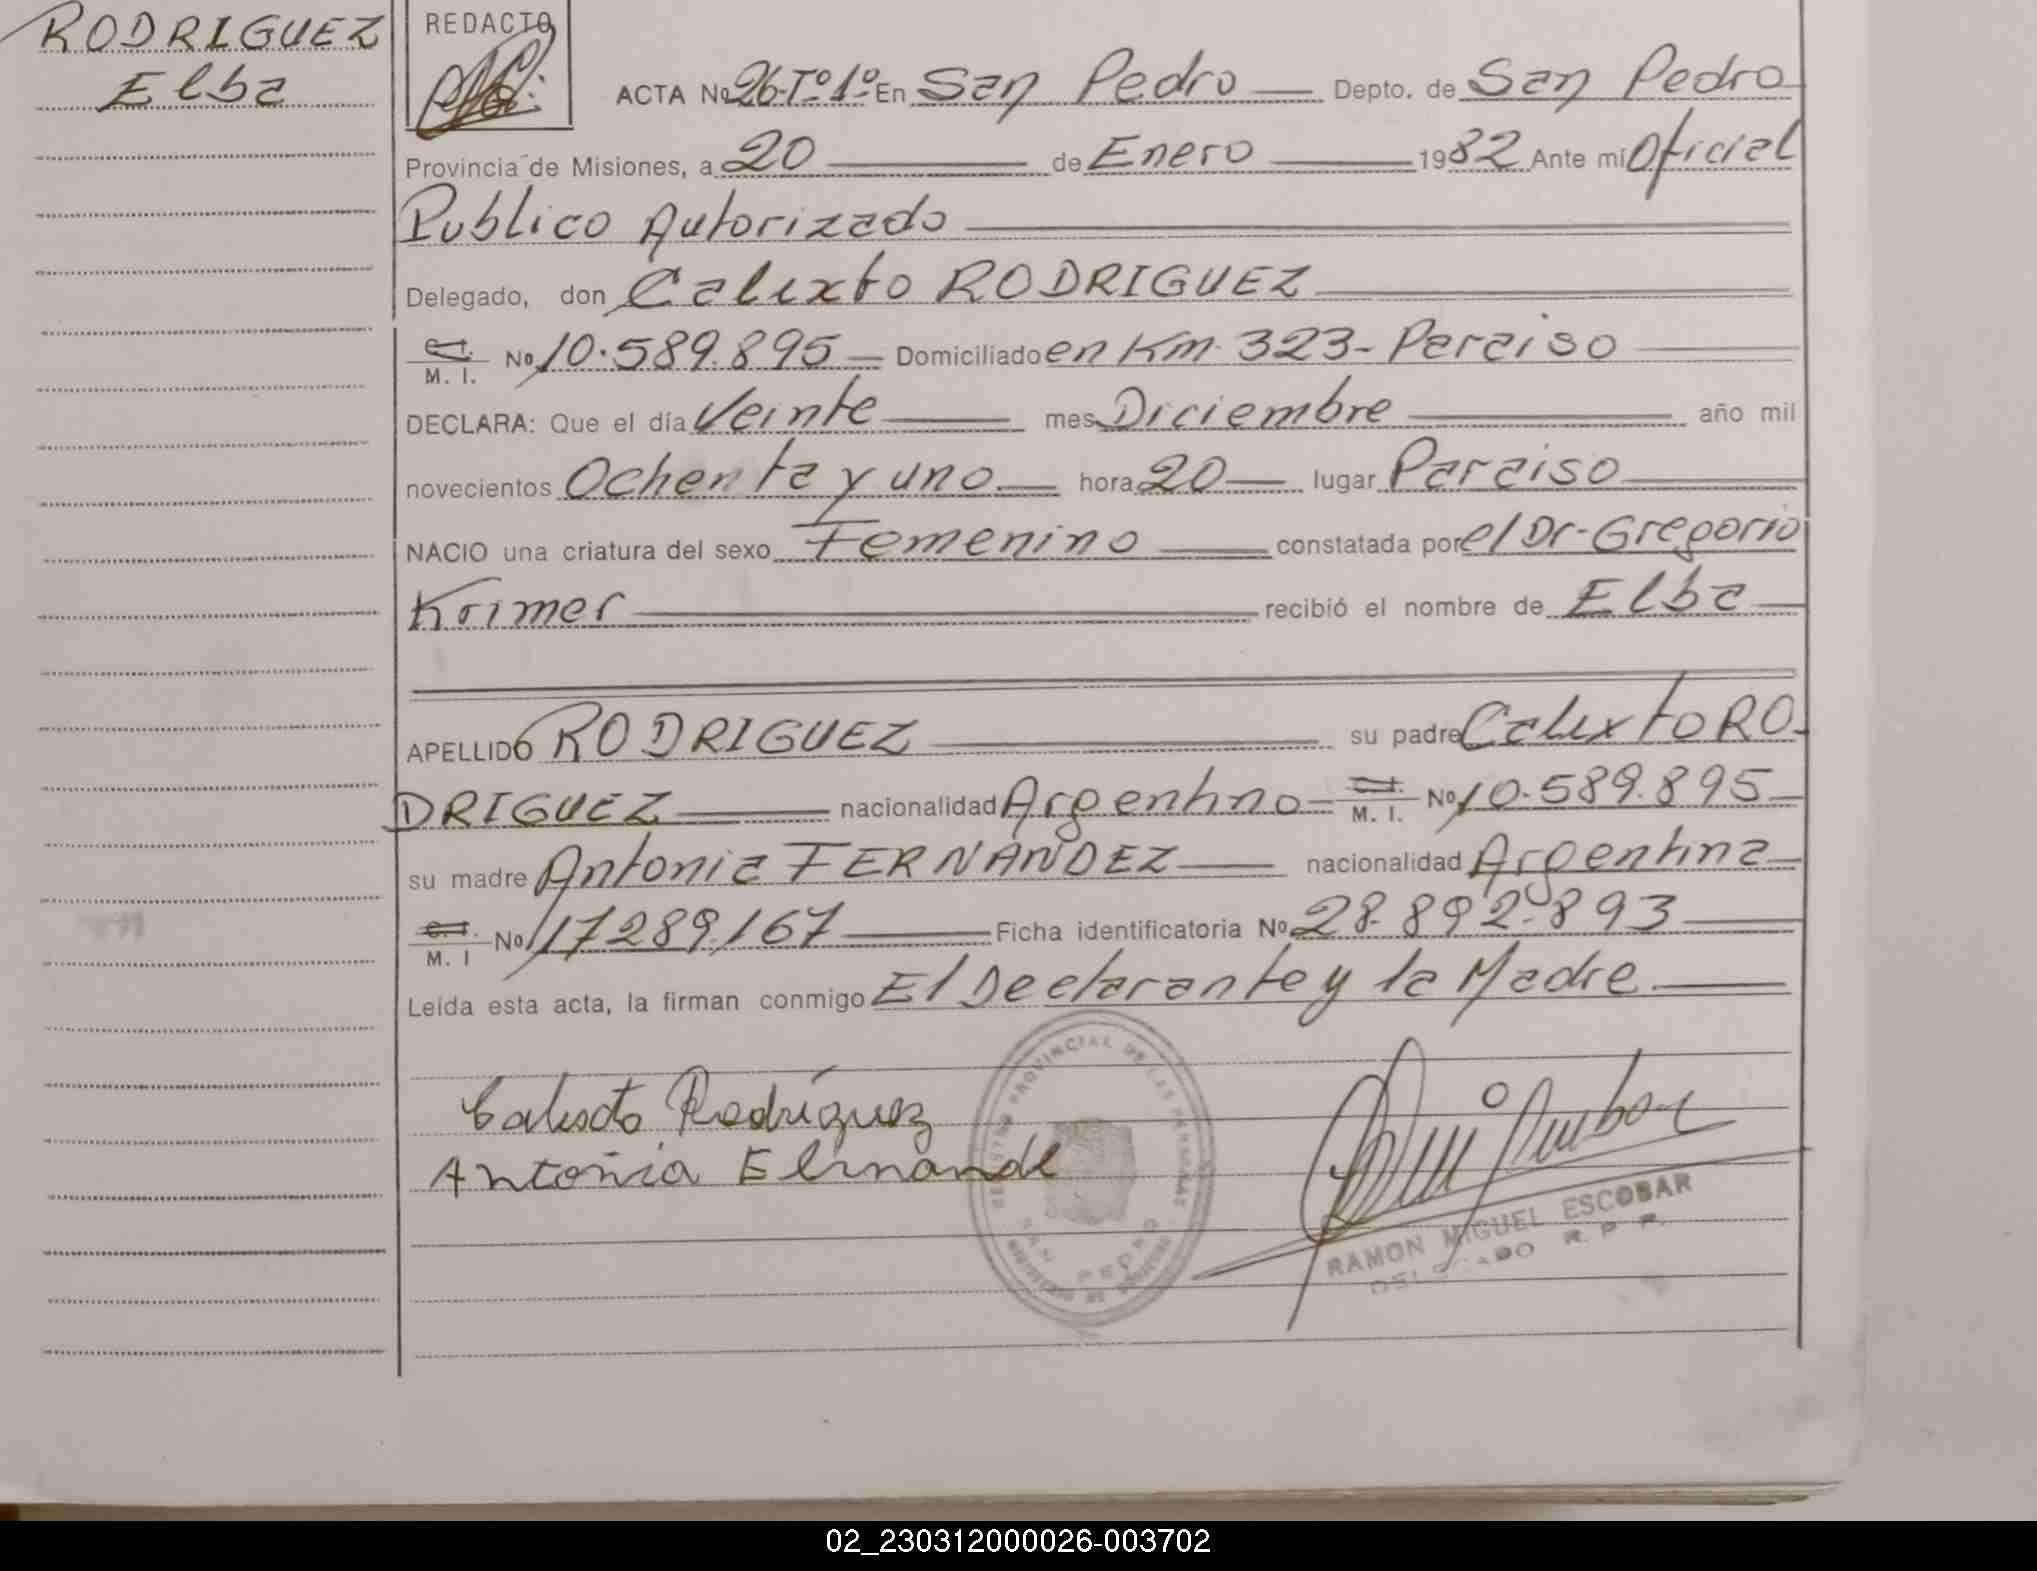 RODRIGUEZ
Elba
REDACTO
ACTA Nº 26-Tº1º En San Pedro Depto. de San Pedro
Provincia de Misiones, a 20 de Enero 1982 Ante mí Oficial
Publico Autorizado
Delegado, don Calixto RODRIGUEZ
C.I. / M. I. Nº 10.589.895 Domiciliado en Km. 323- Paraiso
DECLARA: Que el día Veinte mes Diciembre año mil
novecientos Ochenta y uno hora 20 lugar Paraiso
NACIO una criatura del sexo Femenino constatada por el Dr. Gregorio
Krimer recibió el nombre de Elba
APELLIDO RODRIGUEZ su padre Calixto RO-
DRIGUEZ nacionalidad Argentino C.I. / M. I. Nº 10.589.895
su madre Antonia FERNANDEZ nacionalidad Argentina
C.I. / M. I Nº 17289.167 Ficha identificatoria Nº 28.892.893
Leída esta acta, la firman conmigo El Declarante y la Madre
Calisto Rodríguez
Antonia
REGISTRO PROVINCIAL DE LAS PERSONAS
SAN PEDRO
PROVINCIA DE MISIONES
RAMON MIGUEL ESCOBAR
DELEGADO R. P. P.
02_230312000026-003702